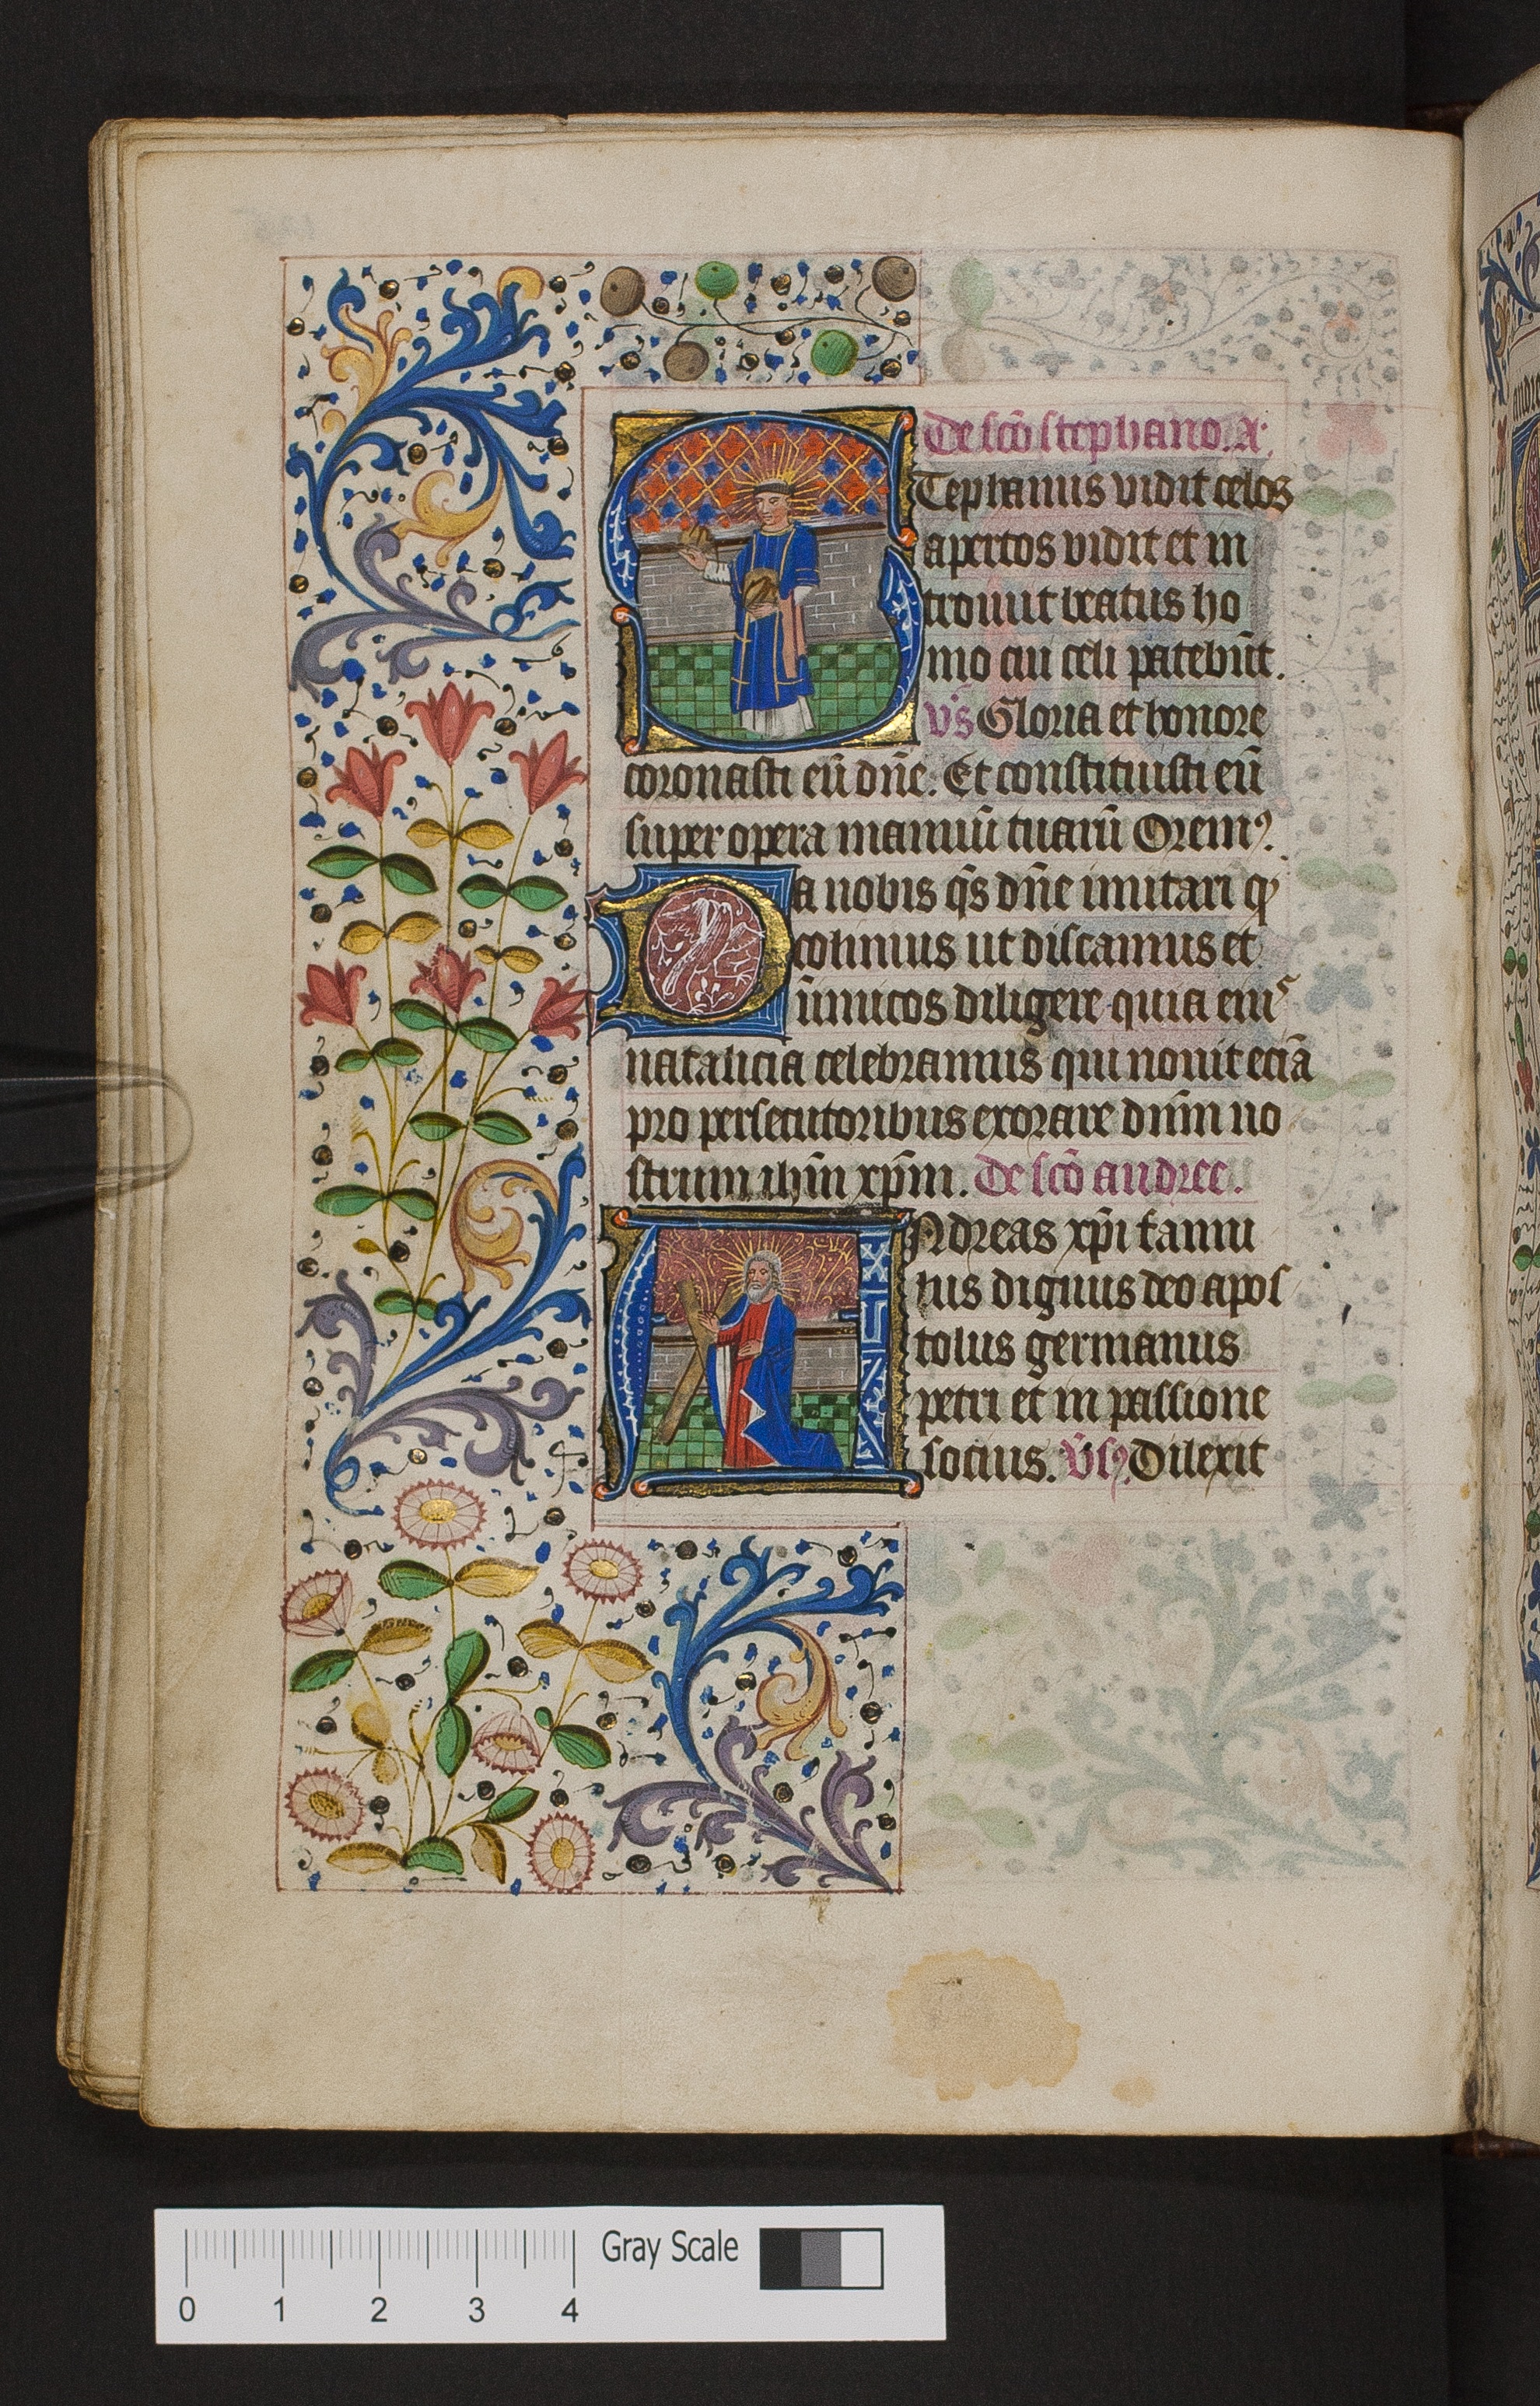 De scō stephano. A:
STephanus vidit celos
apertos vidit et in
troiuit beatus ho
mo cui celi patebūt.
vs̄ Gloria et honore
coronasti eū dn̄e. Et constituisti eū
super opera manuū tuarū Oremꝰ.
Da nobis qs̄ dn̄e imitari qꝫ
colimus ut discamus et
inimicos diligere quia eiuˢ
natalicia celebramus qui nouit eciā
pro persecutoribus exorare dn̄m no
strum ihm̄ xpm̄. De scō andree.
ANdreas xp̄i famu
lus dignus deo apos
tolus germanus
petri et in passione
socius. Vsꝰ. Dilexit
Gray Scale
0 1 2 3 4